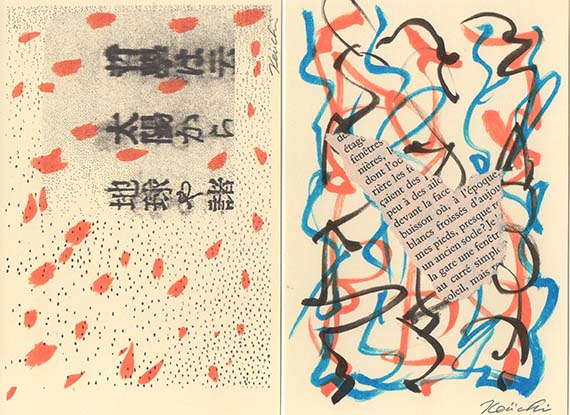 太陽から
地球や諸
de
étage
fenêtres
nières, l
dont l'o
rière les f
çaient des
peu à des all
devant la face
buisson où, à l'époque,
blancs froissés d'aujou
mes pieds, presque
un ancien socle? Je
la gare une fenêtr
au carré simpl
soleil, mais